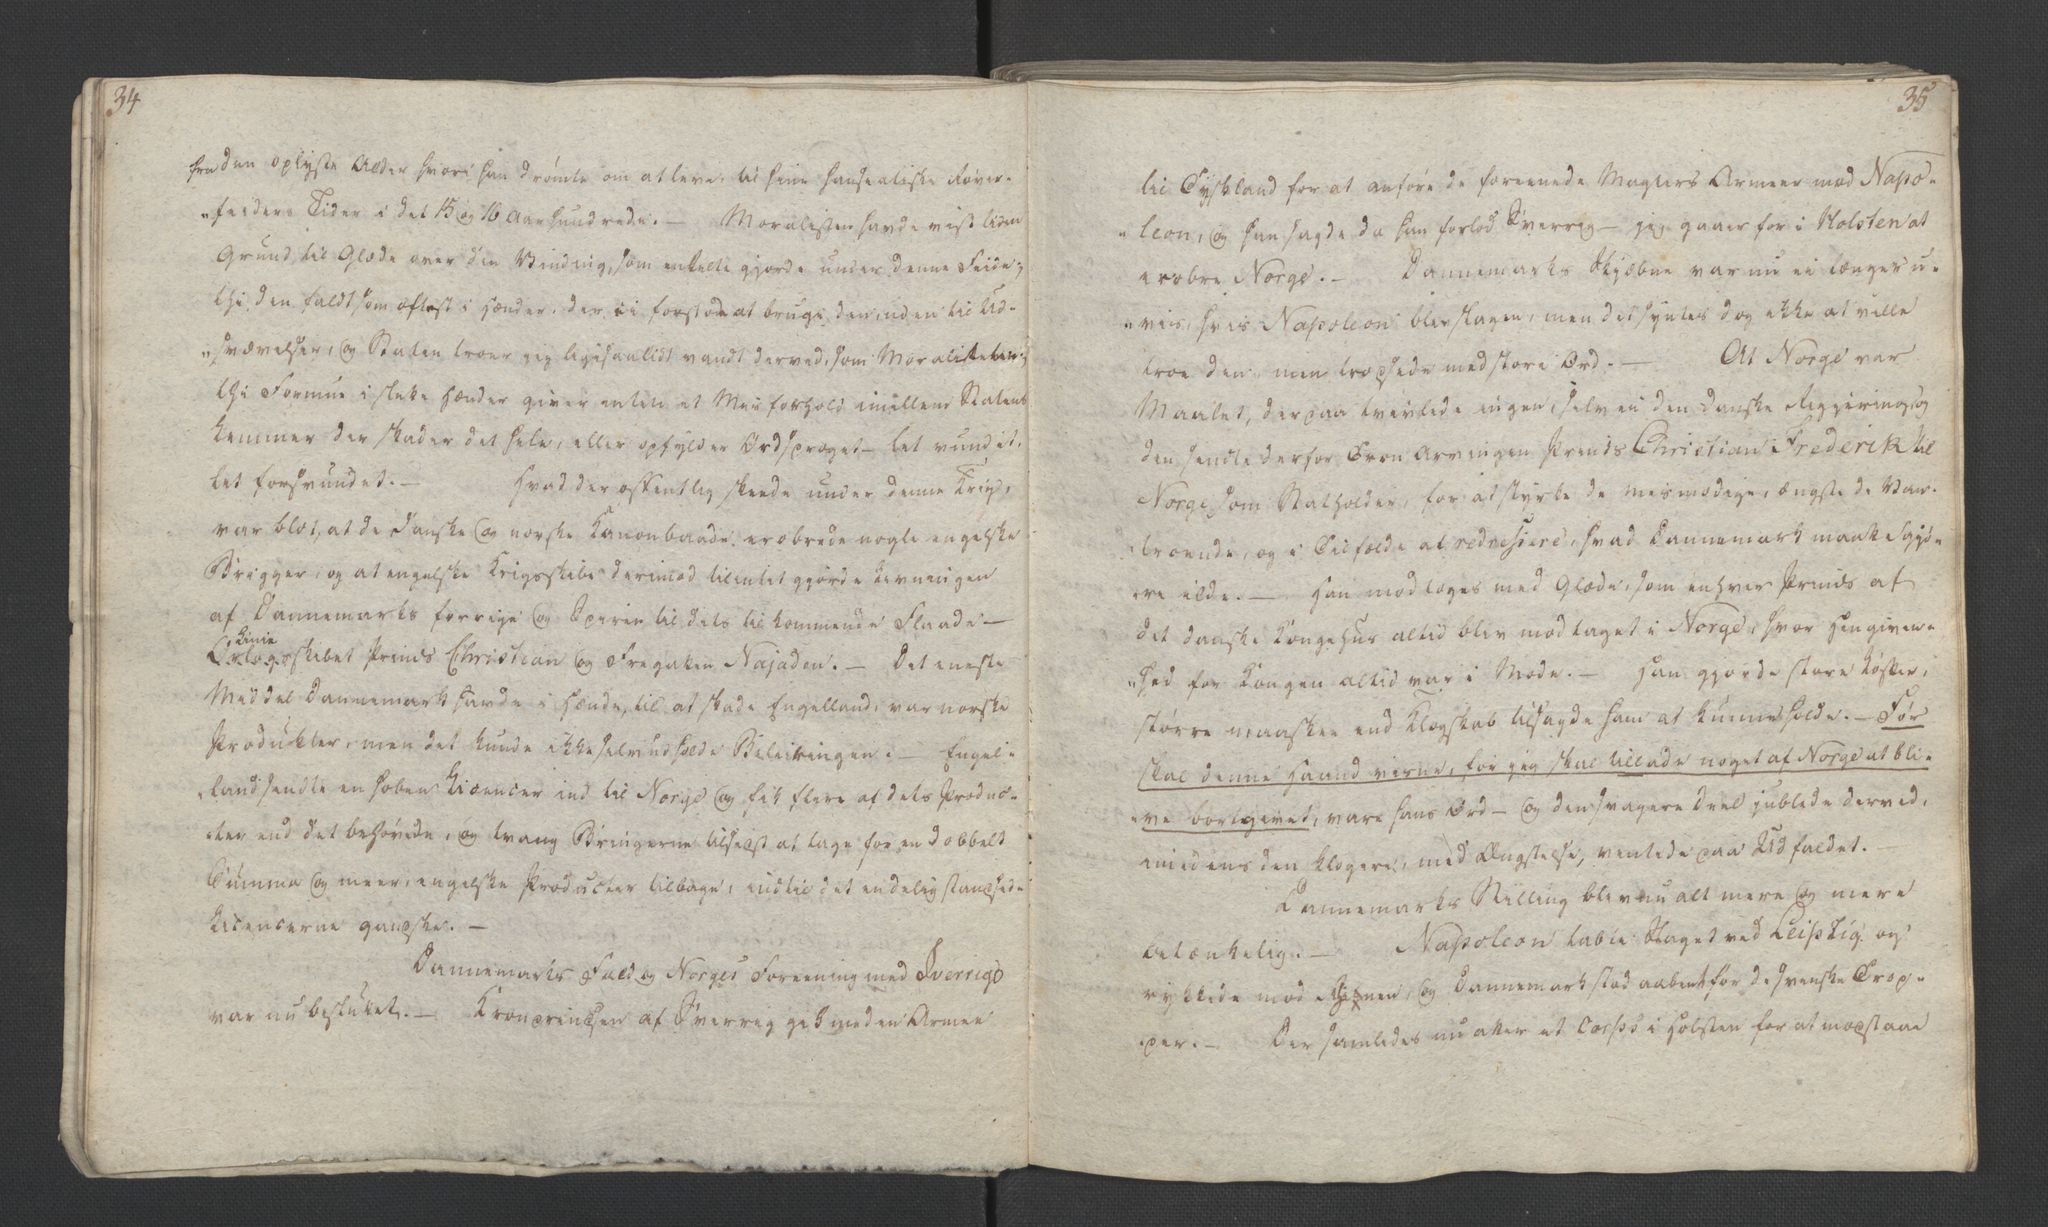 34
fra den oplyste Alder hvori han drømte om at leve, til hine hanseatiske Røver-
"feiders Tider i det 15 og 16 Aarhundrede. — Moralisten havde vist liden
Grund til Glæde over den Vinding, som enkelte gjorde under denne Feide;
thi den faldt som oftest i Hænder, der ei forstod at bruge den, uden til Ud-
"svævelser, og Staten troer jeg ligesaalidt vandt derved, som Moraliteten;
thi Formue i slette Hænder giver enten et Misforhold imellem Statens
Lemmer der skader det hele, eller opfylder Ordsproget — let vundet,
let forsvundet. — Hvad der offentlig skeede under denne Krig,
var blot, at de danske og norske Kanonbaade erobrede nogle engelske
Brigger, og at engelske Krigsskibe derimod tilintetgjorde Levningen
af Dannemarks forrige og Spiren til dets tilkommende Flaade —
Linie
Orlogsskibet Prinds Christian og Fregatten Najaden. — Det eneste
Middel Dannemark havde i Hænde, til at skade Engelland, var norske
Produkter, men det kunde ikke selv udholde Beleiringen. — Engel-
"land sendte en Hoben Licencer ind til Norge og fik flere af dets Produc-
"ter end det behøvede, og tvang Bringerne tilsidst at tage for en dobbelt
Summa og meer, engelske Producter tilbage, indtil det endelig standsede
Licencerne ganske. —
Dannemarks Fald og Norges Foreening med Sverrige
var nu besluttet. — Kronprindsen af Sverrig gik med en Armee
35
til Tyskland for at anføre de foreenede Magters Armeer mod Napo-
"leon, og han sagde da han forlod Sverrig — jeg gaaer for i Holsten at
erobre Norge. — Dannemarks Skjæbne var nu ei længer u-
"vis, hvis Napoleon blev slagen, men det syntes dog ikke at ville
troe den, men trodsede med store Ord. — At Norge var
Maalet, derpaa tvivlede ingen, selv ei den danske Regjering, og
den sendte derfor Tron Arvingen Prinds Christian Frederik til
Norge som Statholder, for at styrke de mismodige, ængste de Van-
"troende, og i Tilfælde at redressere, hvad Dannemark maatte gjø-
"re ilde. — Han modtoges med Glæde, som enhver Prinds af
det danske Kongehus altid blev modtaget i Norge, hvor Hengiven-
"hed for Kongen altid var i Mode. — Han gjorde store Løfter,
større maaskee end Klogskab tilsagde ham at kunne holde. — Før
skal denne Haand visne, før jeg skal tillade noget af Norge at bli-
"ve bortgivet, vare hans Ord — og den svagere Deel jublede derved,
imedens den klogere, med Ængstelse, ventede paa Udfaldet. —
Dannemarks Stilling blev nu alt mere og mere
betænkelig. — Napoleon tabte Slaget ved Leipzig og
rykkede mod Rhinen, og Dannemark stod aabent for de svenske Trop-
"per. — Der samledes nu atter et Corps i Holsten for at modstaae